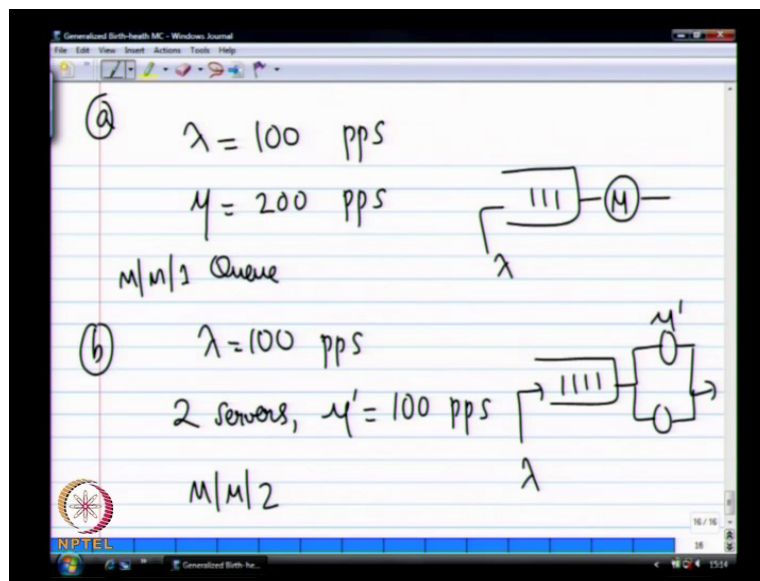 Generalized Birth-heath MC - Windows Journal
File Edit View Insert Actions Tools Help
a
λ = 100 pps
μ = 200 pps
μ
λ
M/M/1 Queue
b
λ = 100 pps
μ'
2 servers, μ' = 100 pps
λ
M/M/2
16 / 16
16
NPTEL
Generalized Birth-he...
15:14